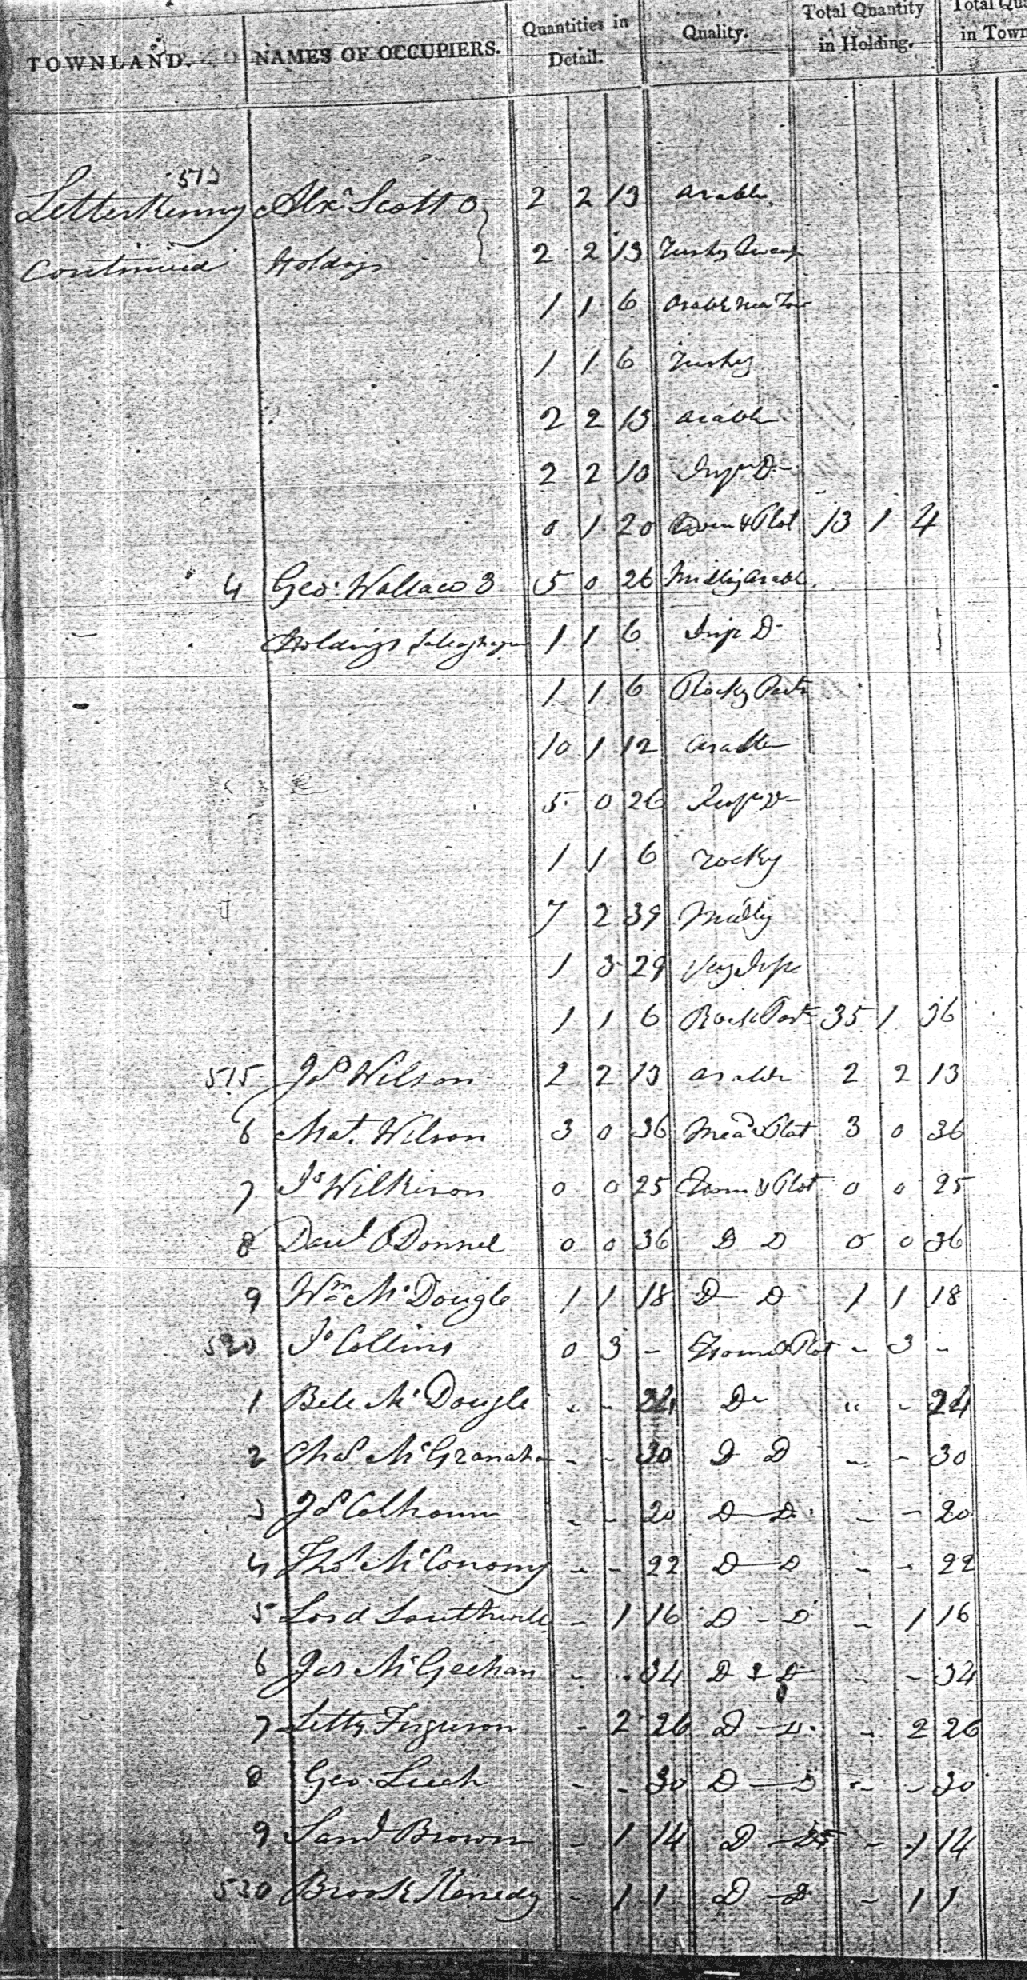 TOWNLAND. NAMES OF OCCUPIERS. Quantities in Detail. Quality. Total Quantity in Holding. Total in Town
513
Letterkenny Alexr Scott 2 2 13 Arable
Continued Holdings 2 2 13
1 1 6 Arable
1 1 6
2 2 13 Arable
2 2 10 Infr Do
0 1 20 & Plot 13 1 4
4 Geo. Wallace 3 5 0 26 Midlg Arable
Holdings 1 1 6 Infr Do
1 1 6 Rocky Past
10 1 12 Arable
5 0 26 Infr Do
1 1 6 rocky
7 2 39 Midlg
1 3 29 Very Infr
1 1 6 Rock Past 35 1 36
515 Jos Wilson 2 2 13 Arable 2 2 13
6 Mat. Wilson 3 0 36 Mead & Plat 3 0 36
7 Js Wilkinson 0 0 25 & Plot 0 0 25
8 Danl O Donnel 0 0 36 D D 0 0 36
9 Wm McDougle 1 1 18 D D 1 1 18
520 Jo Collins 0 3 - & Plot - 3 -
1 Bell McDougle - - 24 Do - - 24
2 Chas McGranahan - - 30 D D - - 30
3 Jos Colhoun - - 20 D D - - 20
4 Thos McConomy - - 22 D D - - 22
5 Lord Southwell - 1 16 D D - 1 16
6 Jas McGeehan - - 34 D & D - - 34
7 Letty Ferguson - 2 26 D D - 2 26
8 Geo. Leech - - 30 D D - - 30
9 Saml Brown - 1 14 D D - 1 14
530 Brook Kenedy - 1 1 D D - 1 1